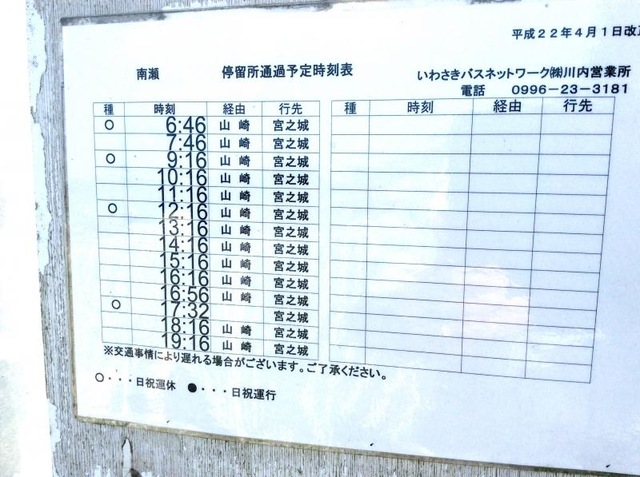 平成22年4月1日改正
南瀬 停留所通過予定時刻表 いわさきバスネットワーク㈱川内営業所
電話 0996-23-3181
種 時刻 経由 行先 種 時刻 経由 行先
○ 6:46 山崎 宮之城
7:46 山崎 宮之城
○ 9:16 山崎 宮之城
10:16 山崎 宮之城
11:16 山崎 宮之城
○ 12:16 山崎 宮之城
13:16 山崎 宮之城
14:16 山崎 宮之城
15:16 山崎 宮之城
16:16 山崎 宮之城
16:56 山崎 宮之城
○ 17:32 宮之城
18:16 山崎 宮之城
19:16 山崎 宮之城
※交通事情により遅れる場合がございます。ご了承ください。
○・・・日祝運休 ●・・・日祝運行